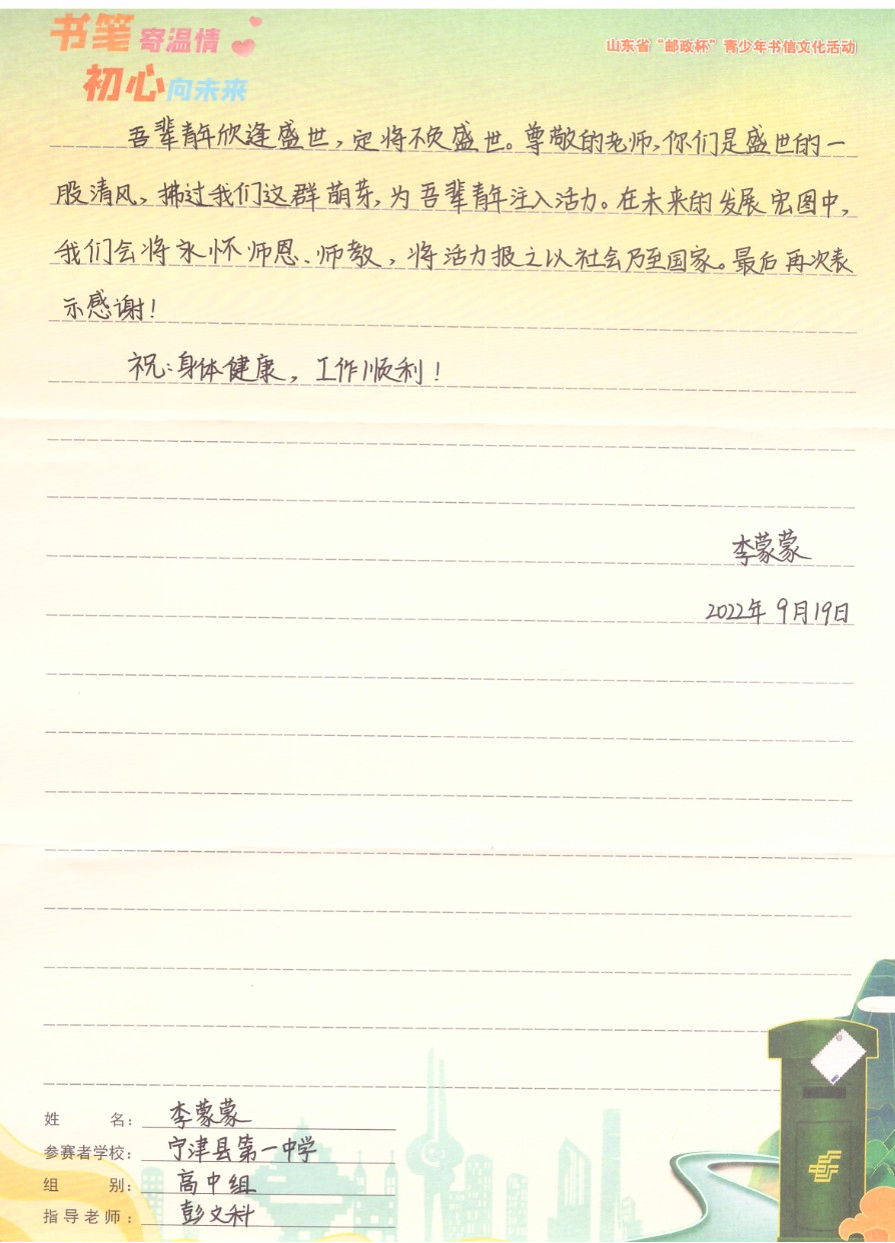 书笔寄温情
初心向未来
山东省“邮政杯”青少年书信文化活动
吾辈青年欣逢盛世，定将不负盛世。尊敬的老师，你们是盛世的一
股清风，拂过我们这群萌芽，为吾辈青年注入活力。在未来的发展宏图中，
我们会将永怀师恩、师教，将活力报之以社会乃至国家。最后再次表
示感谢！
祝：身体健康，工作顺利！
李蒙蒙
2022年9月19日
姓 名：李蒙蒙
参赛者学校：宁津县第一中学
组 别：高中组
指导老师：彭文科